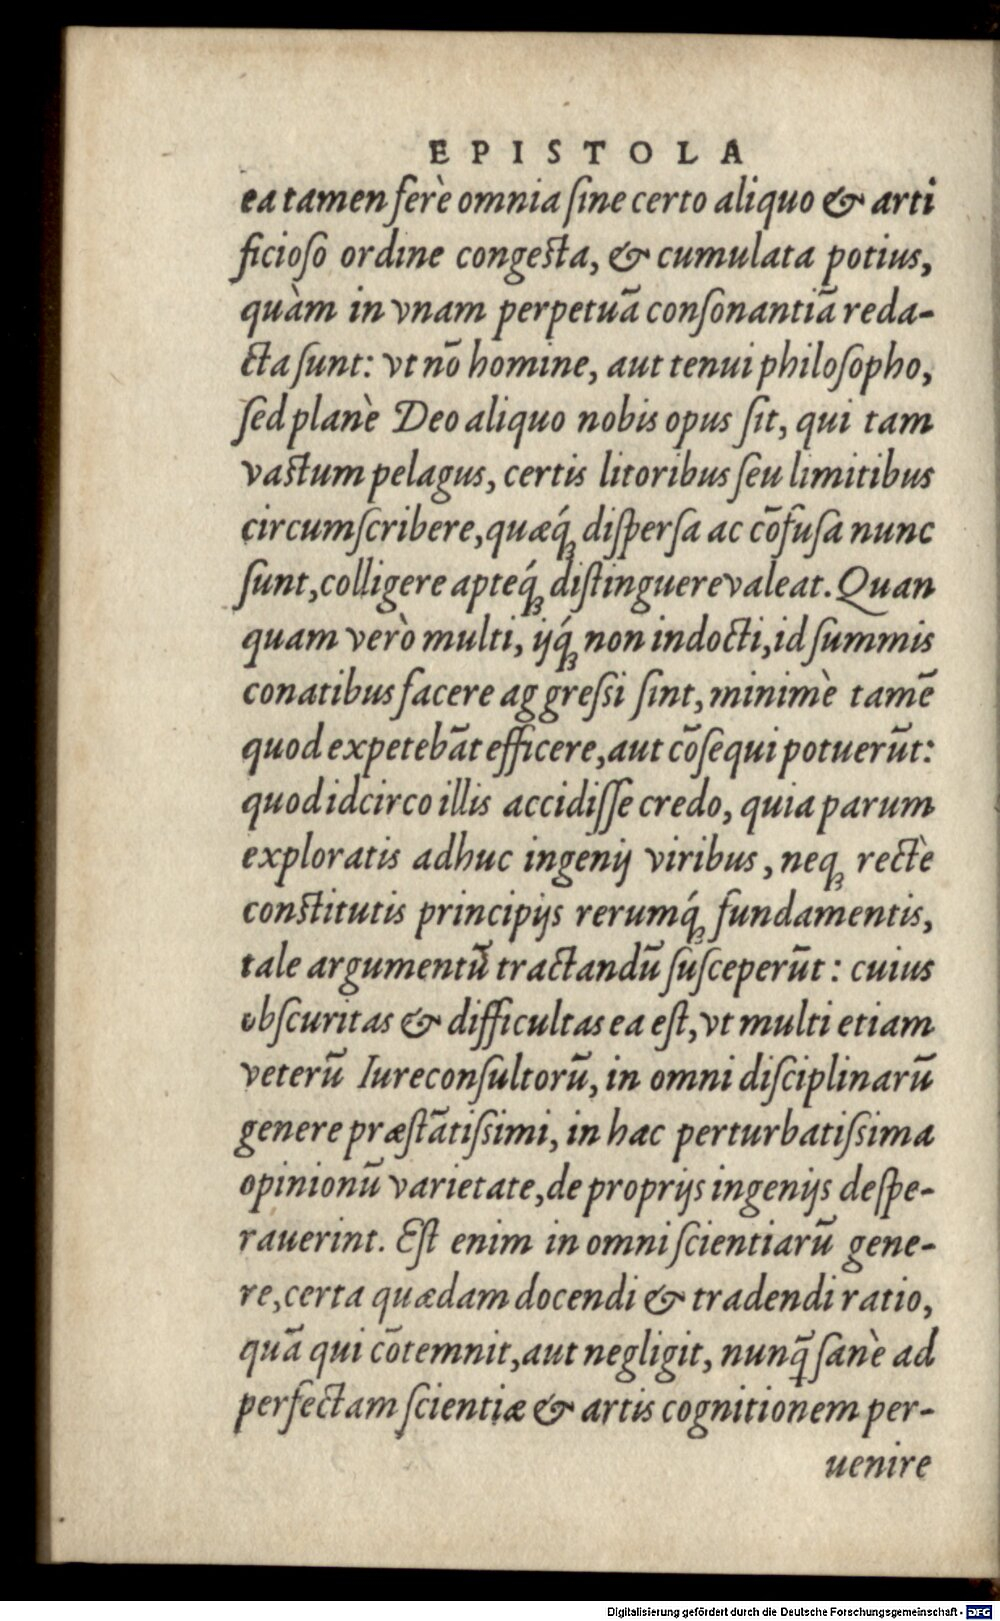 EPISTOLA
ea tamen ferè omnia ſine certo aliquo & arti
ficioſo ordine congeſta, & cumulata potius,
quàm in vnam perpetuā conſonantiā reda-
cta ſunt: vt nō homine, aut tenui philoſopho,
ſed planè Deo aliquo nobis opus ſit, qui tam
vaſtum pelagus, certis litoribus ſeu limitibus
circumſcribere, quæq́; diſperſa ac cōfuſa nunc
ſunt, colligere apteq́; diſtinguere valeat. Quan
quam verò multi, ijq́; non indocti, id ſummis
conatibus facere aggreſſi ſint, minimè tamē
quod expetebāt efficere, aut cōſequi potuerūt:
quod idcirco illis accidiſſe credo, quia parum
exploratis adhuc ingenij viribus, neq; rectè
conſtitutis principijs rerumq́; fundamentis,
tale argumentū tractandū ſuſceperūt: cuius
obſcuritas & difficultas ea eſt, vt multi etiam
veterū Iureconſultorū, in omni diſciplinarū
genere præſtātiſſimi, in hac perturbatiſſima
opinionū varietate, de proprijs ingenijs deſpe-
rauerint. Eſt enim in omni ſcientiarū gene-
re, certa quædam docendi & tradendi ratio,
quā qui cōtemnit, aut negligit, nunq̄ ſanè ad
perfectam ſcientiæ & artis cognitionem per-
uenire
Digitalisierung gefördert durch die Deutsche Forschungsgemeinschaft - DFG